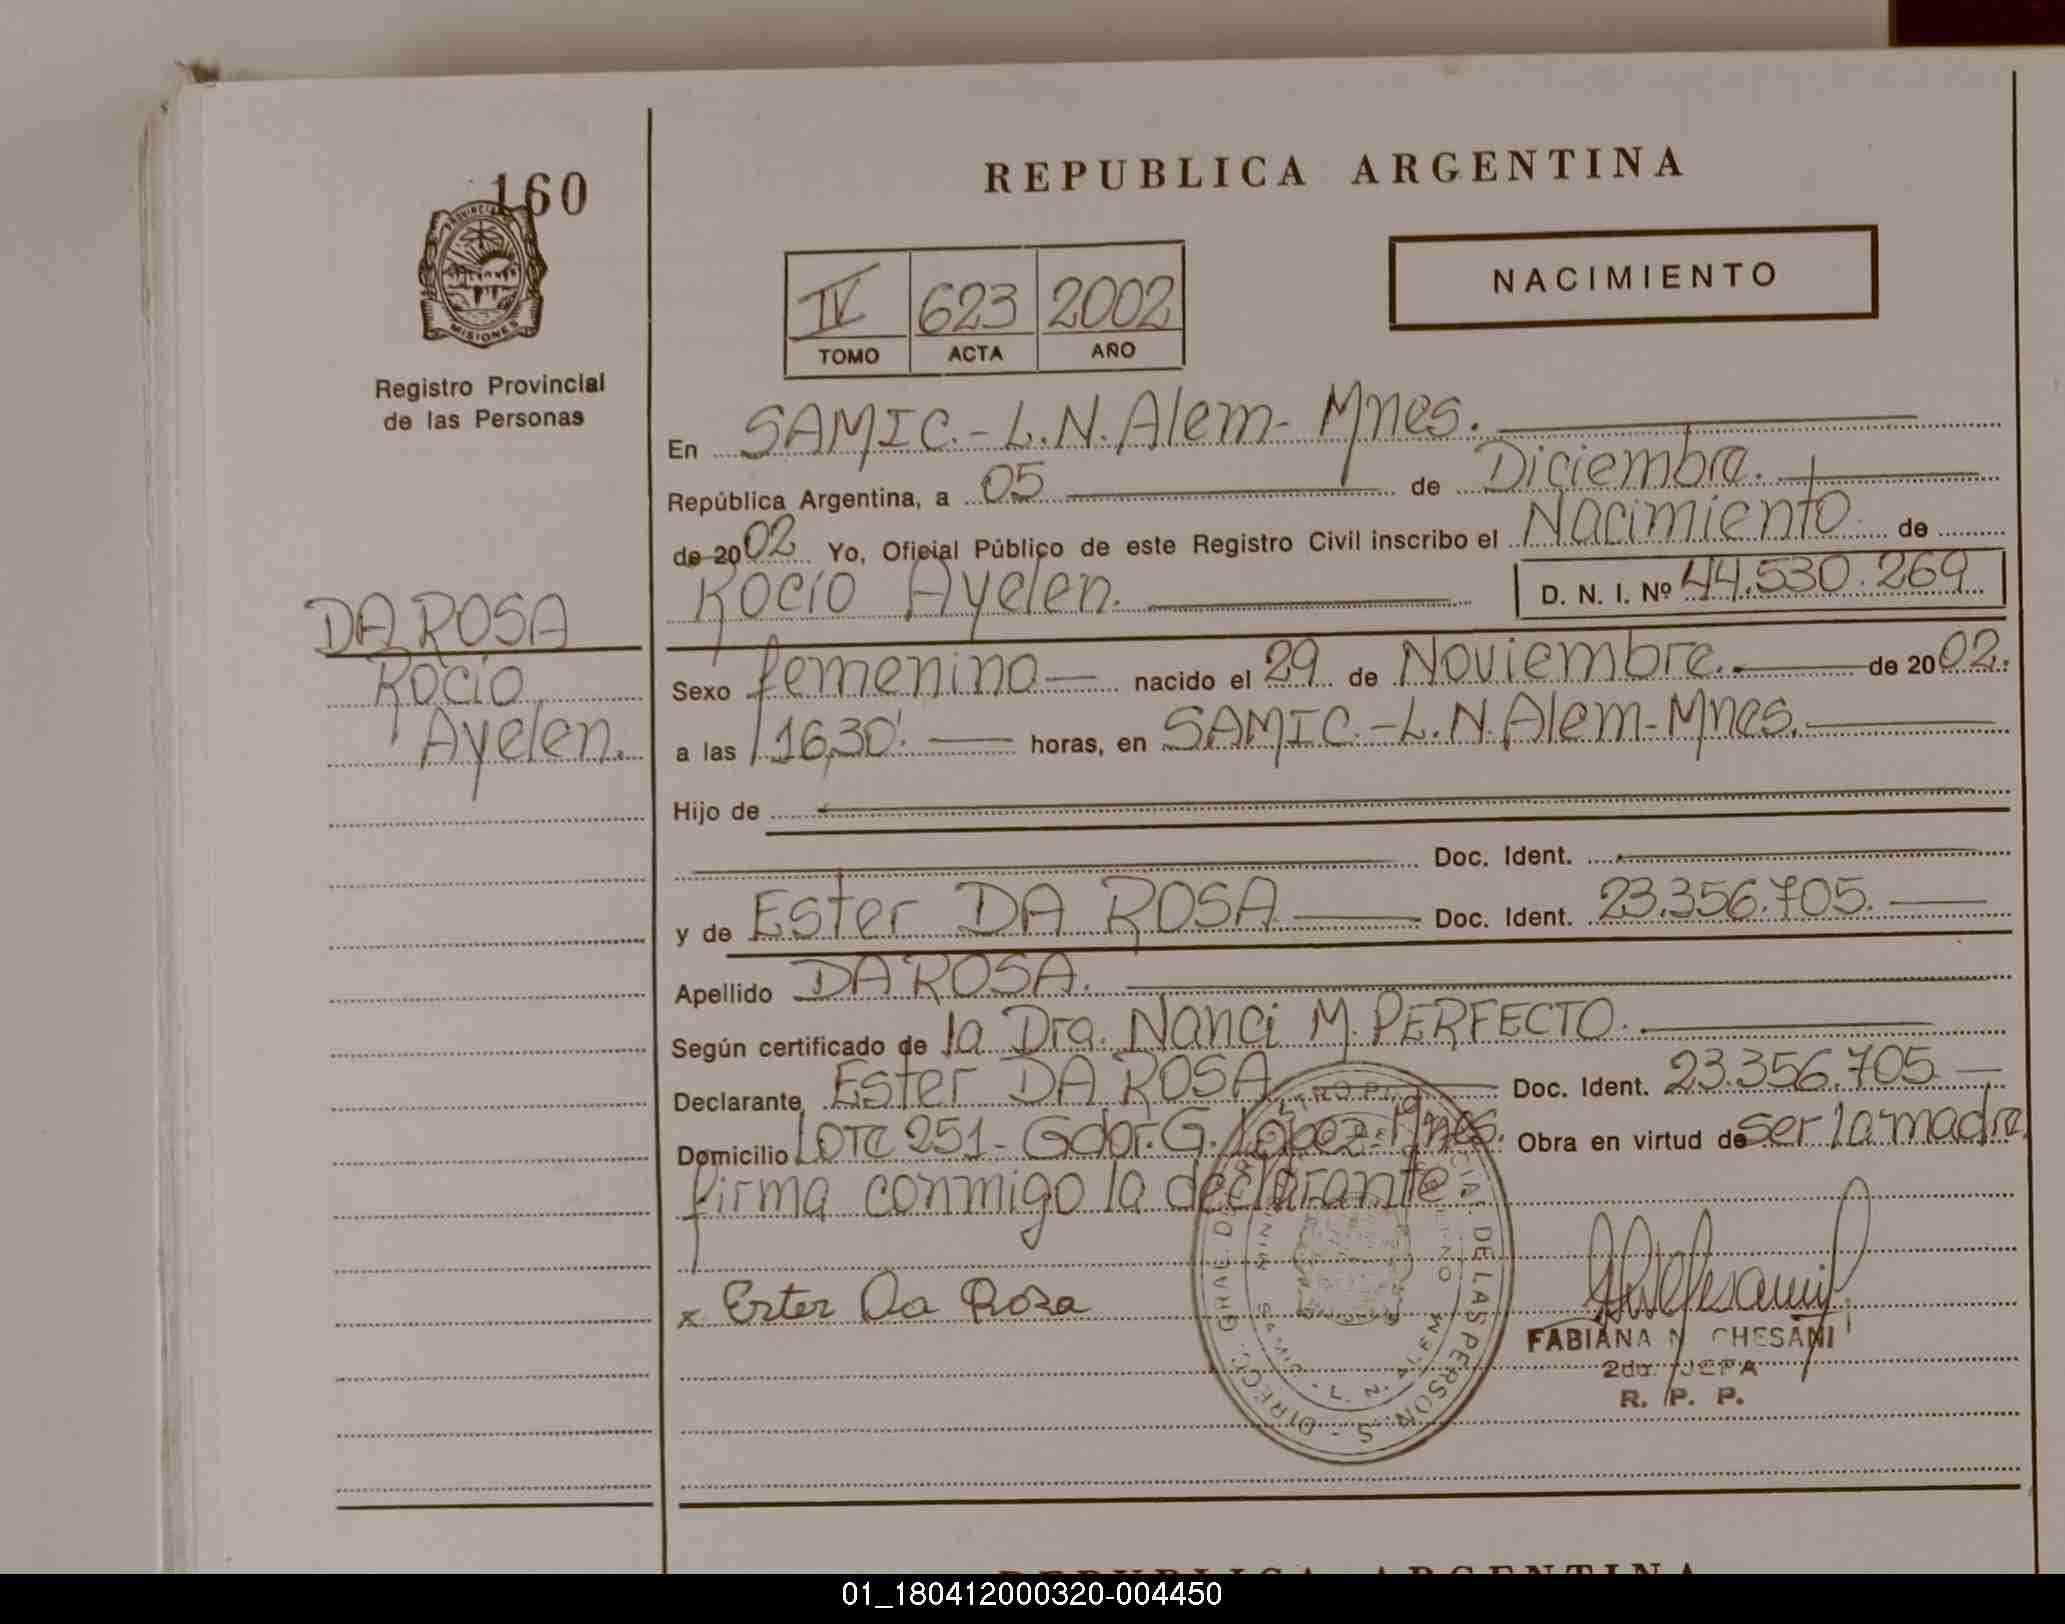 160
PROVINCIA
MISIONES
Registro Provincial
de las Personas
REPUBLICA ARGENTINA
NACIMIENTO
IV 623 2002
TOMO ACTA AÑO
En SAMIC.-L.N.Alem-Mnes.
República Argentina, a 05 de Diciembre.
de 2002 Yo, Oficial Público de este Registro Civil inscribo el Nacimiento de
Rocío Ayelen. D. N. I. Nº 44.530.269
DA ROSA
Rocío
Ayelen.
Sexo femenino nacido el 29 de Noviembre. de 2002.
a las 16,30' horas, en SAMIC.-L.N.Alem-Mnes.
Hijo de
Doc. Ident.
y de Ester DA ROSA Doc. Ident. 23.356.705.
Apellido DA ROSA.
Según certificado de la Dra. Nanci M. PERFECTO.
Declarante Ester DA ROSA Doc. Ident. 23.356.705
Domicilio Lote 251- Gdor. G. López-Mnes. Obra en virtud de ser la madre,
firma conmigo la declarante.
x Ester Da Rosa
FABIANA N CHESANI
2da. JEFA
R. P. P.
REPUBLICA ARGENTINA
01_180412000320-004450